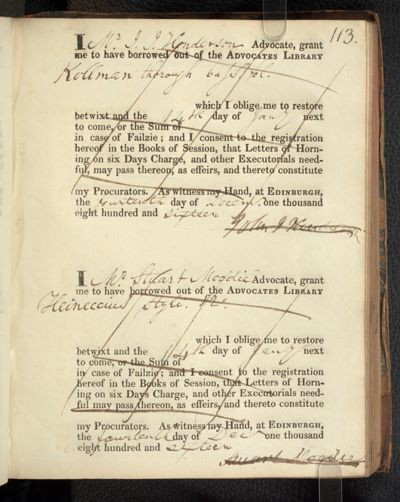 113.
I Mr. J. J. Henderson Advocate, grant
me to have borrowed out of the ADVOCATES LIBRARY
Kollman thorough bass &c.
which I oblige me to restore
betwixt and the 14th day of Jany next
to come, or the Sum of
in case of Failzie; and I consent to the registration
hereof in the Books of Session, that Letters of Horn-
ing on six Days Charge, and other Executorials need-
ful, may pass thereon, as effeirs, and thereto constitute
my Procurators. As witness my Hand, at EDINBURGH,
the fourteenth day of Decr. one thousand
eight hundred and sixteen
John J Henderson
I Mr. Stuart Moodie Advocate, grant
me to have borrowed out of the ADVOCATES LIBRARY
Heineccius Style. &c.
which I oblige me to restore
betwixt and the 14th day of Jany next
to come, or the Sum of
in case of Failzie; and I consent to the registration
hereof in the Books of Session, that Letters of Horn-
ing on six Days Charge, and other Executorials need-
ful may pass thereon, as effeirs, and thereto constitute
my Procurators. As witness my Hand, at EDINBURGH,
the fourteenth day of Decr one thousand
eight hundred and sixteen
Stuart Moodie